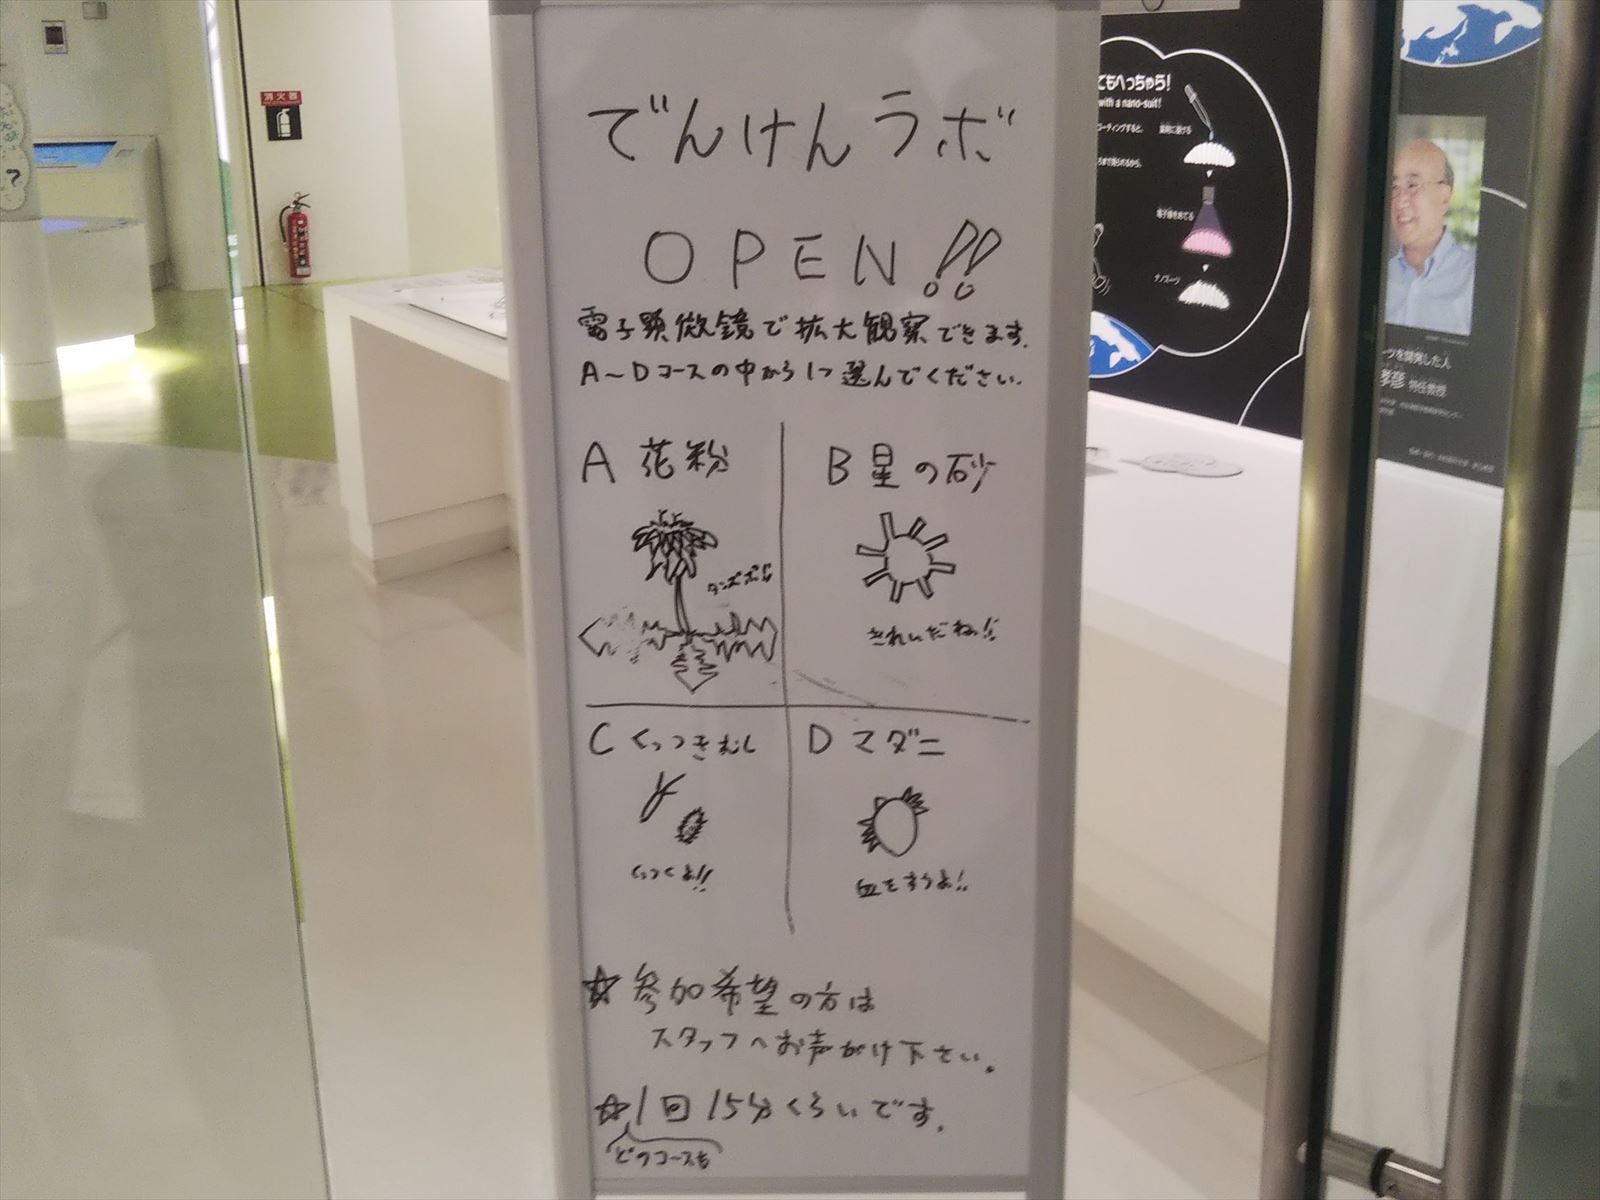 でんけんラボ
OPEN!!
電子顕微鏡で拡大観察できます。
A~Dコースの中から1つ選んでください。
A 花粉
タンポポ!!
B 星の砂
きれいだね!!
C くっつきむし
くっつくよ!!
D マダニ
血をすうよ!!
☆参加希望の方は
スタッフへお声がけ下さい。
☆1回15分くらいです。
どのコースも
消火器
?
てもへっちゃら!
with a nano-suit!
コーティングすると、
薬剤に漬ける
電子線をあてる
ナノスーツ
ーツを開発した人
孝彦 特任教授